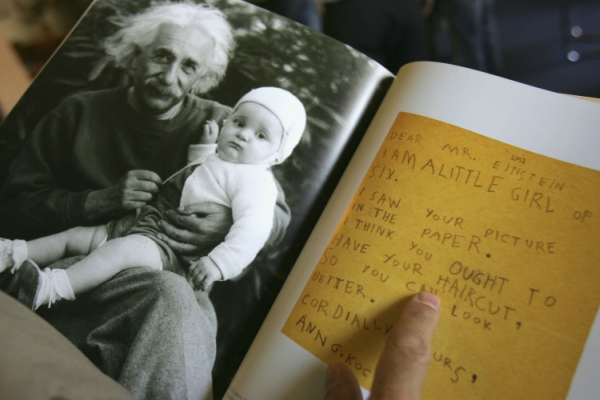 DEAR MR. EINSTEIN
I AM A LITTLE GIRL OF
SIX.
I SAW YOUR PICTURE
IN THE PAPER.
I THINK YOU OUGHT TO
HAVE YOUR HAIRCUT,
SO YOU CAN LOOK
BETTER.
CORDIALLY YOURS,
ANN G. KOC